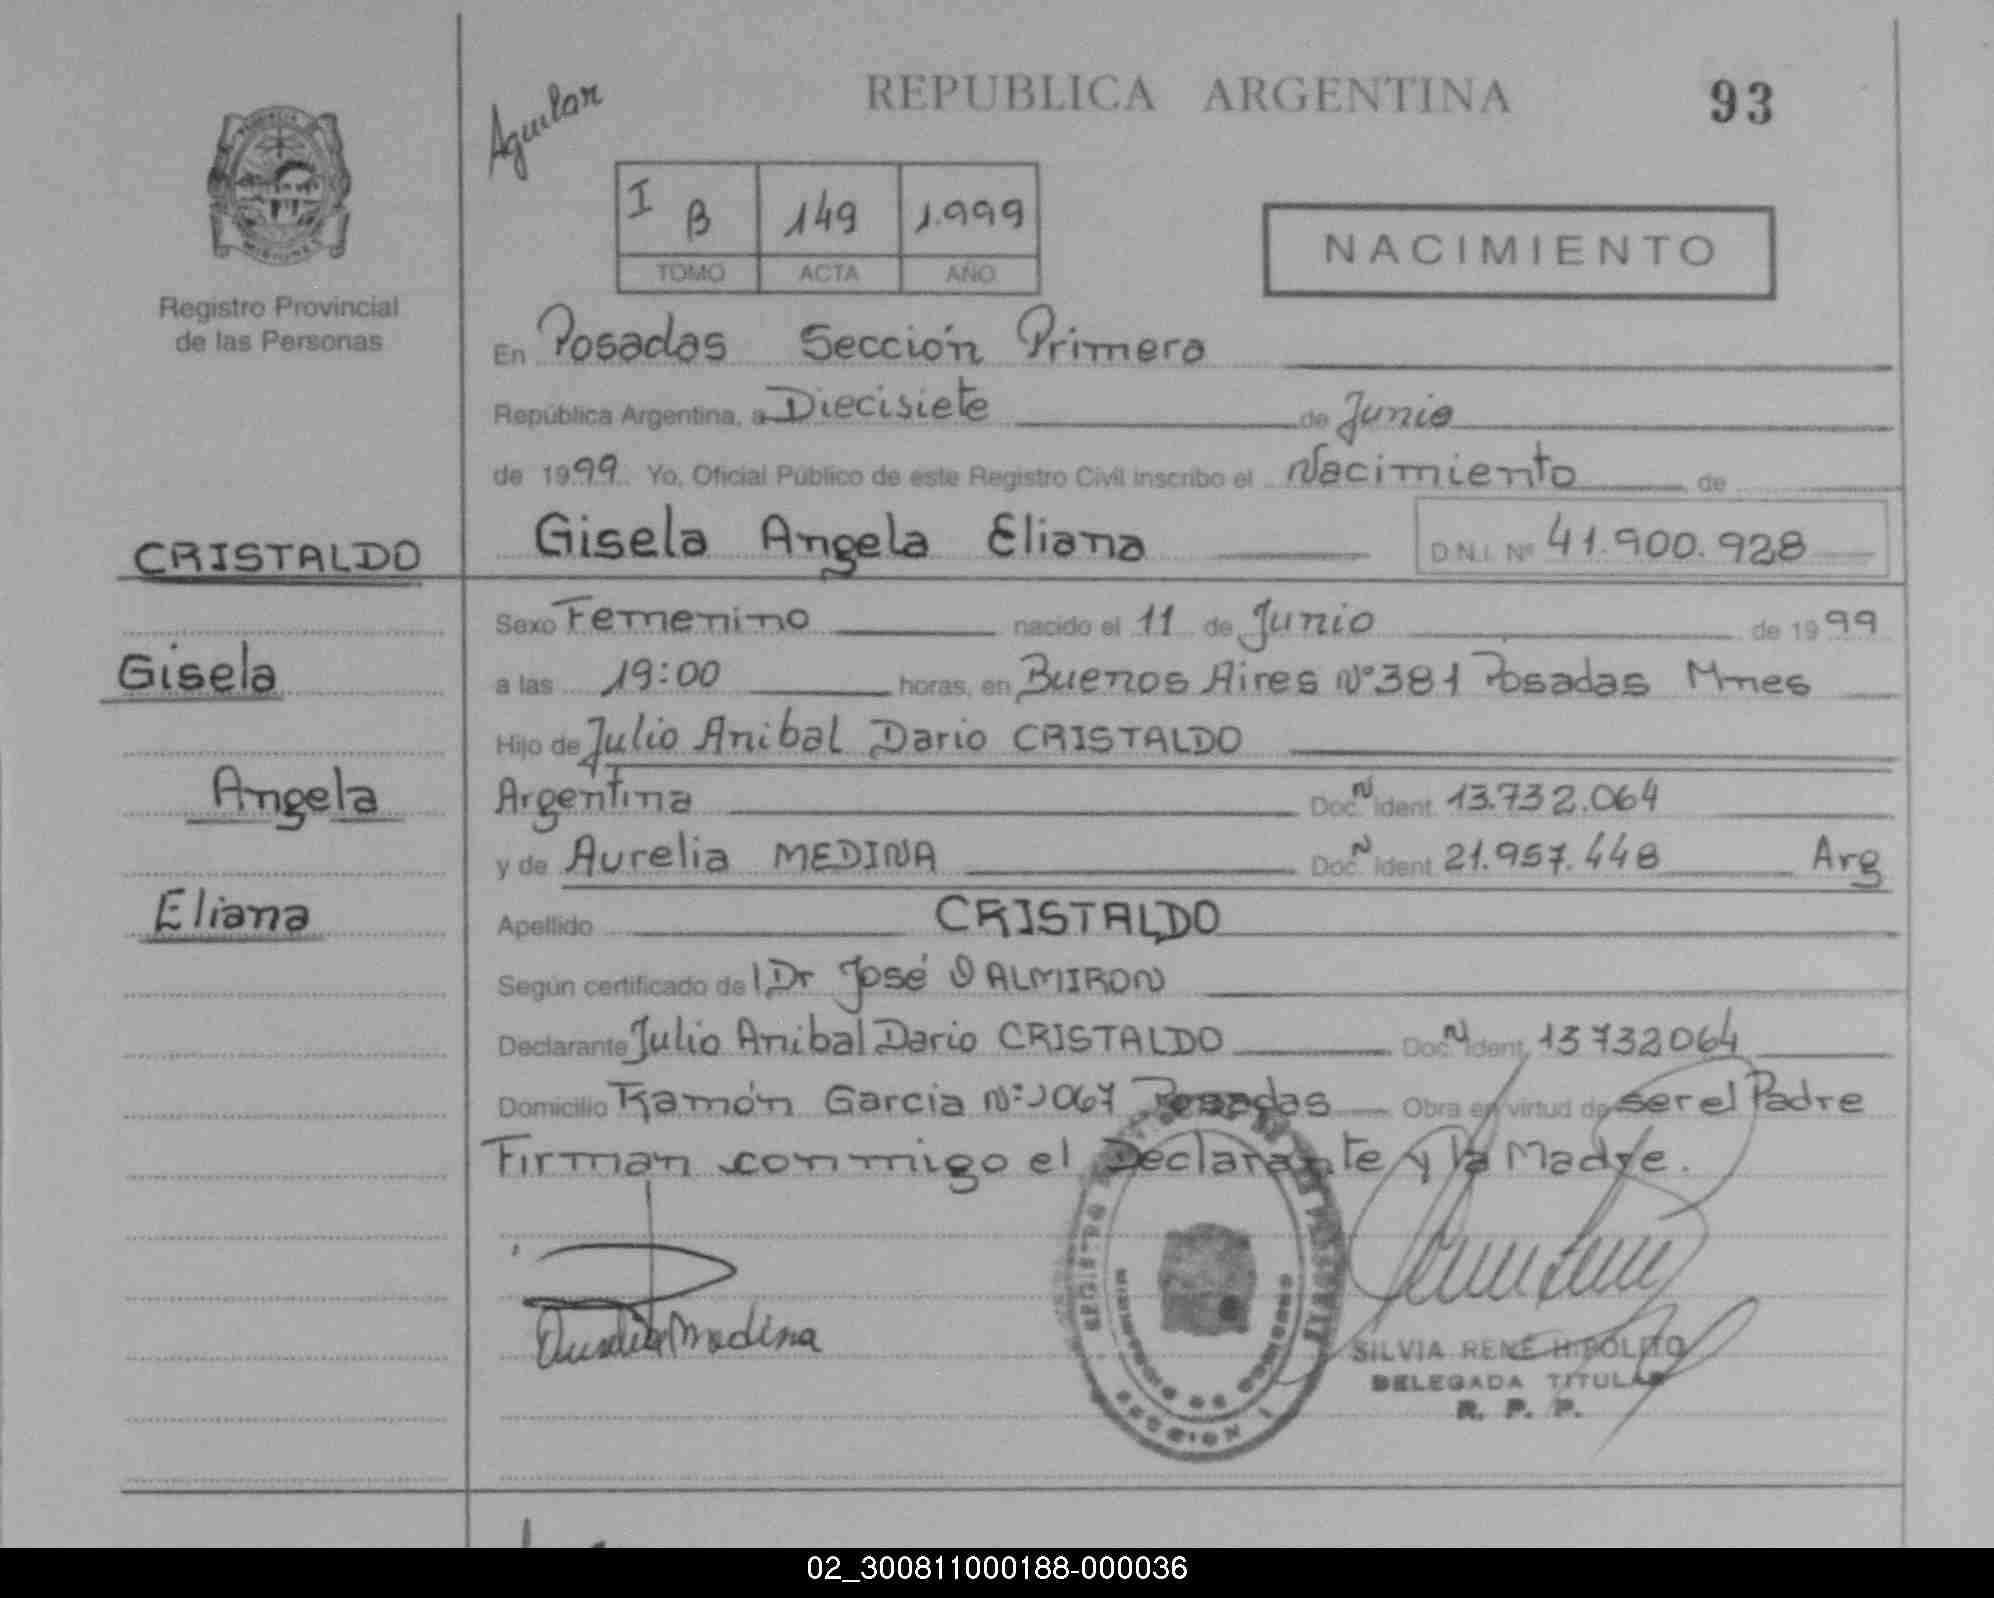 REPUBLICA ARGENTINA
93
Aguilar
I B 149 1.999
TOMO ACTA AÑO
NACIMIENTO
Registro Provincial
de las Personas
En Posadas Sección Primera
República Argentina, a Diecisiete de Junio
de 1999. Yo, Oficial Público de este Registro Civil inscribo el Nacimiento de
CRISTALDO
Gisela Angela Eliana D.N.I. Nº 41.900.928
Sexo Femenino nacido el 11 de Junio de 1999
Gisela
a las 19:00 horas, en Buenos Aires Nº 381 Posadas Mnes
Hijo de Julio Anibal Dario CRISTALDO
Angela
Argentina Doc. N Ident. 13.732.064
y de Aurelia MEDINA Doc. N Ident. 21.957.448 Arg
Eliana
Apellido CRISTALDO
Según certificado del Dr José O ALMIRON
Declarante Julio Anibal Dario CRISTALDO Doc. N Ident. 13732064
Domicilio Ramón Garcia Nº 2067 Posadas Obra en virtud de ser el Padre
Firman conmigo el Declarante y la Madre.
Aurelia Medina
REGISTRO
SECCION I
SILVIA RENÉ HIPOLITO
DELEGADA TITULAR
R. P. P.
02_300811000188-000036